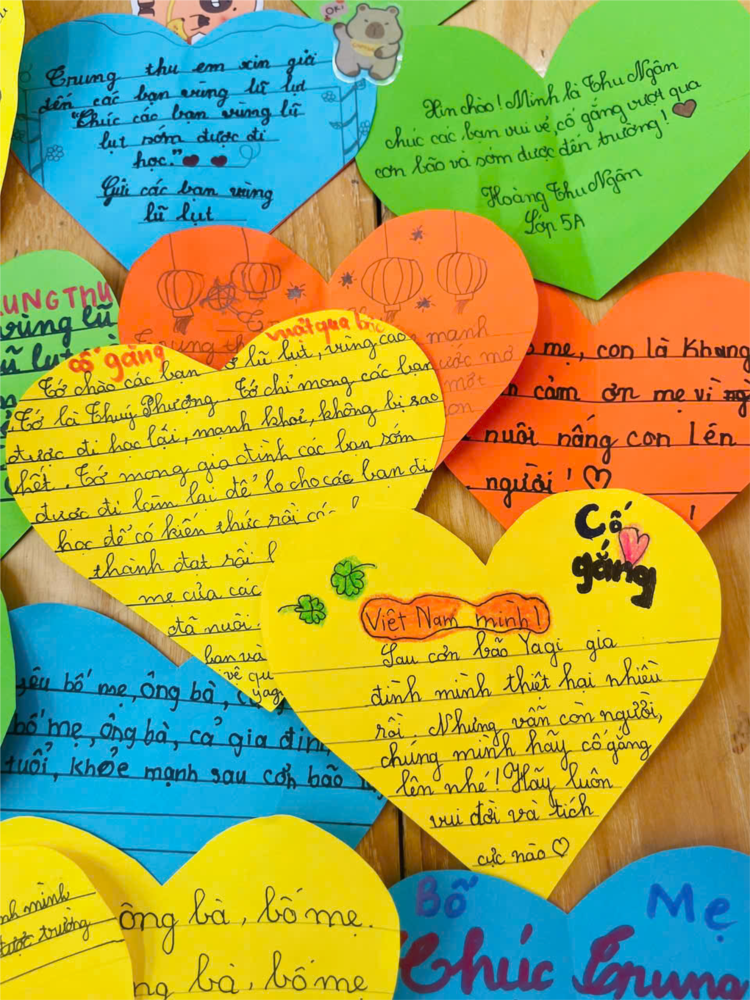 ORI
Trung thu em xin gửi
đến các bạn vùng lũ lụt
"Chúc các bạn vùng lũ
lụt sớm được đi
học."
Gửi các bạn vùng
lũ lụt
Xin chào! Mình là Thu Ngân
chúc các bạn vui vẻ, cố gắng vượt qua
cơn bão và sớm được đến trường!
Hoàng Thu Ngân
Lớp 5A
UNG THU
vùng lũ
lũ lụt
Trung th
mạnh
ước mơ
một
on
mẹ, con là Khang
cảm ơn mẹ vì
nuôi nấng con lên
người!
!
cố gắng vượt qua bão
Tớ chào các bạn ở lũ lụt, vùng cao
Tớ là Thuý Phượng. Tớ chỉ mong các bạn
được đi học lại, mạnh khoẻ, không bị sao
hết. Tớ mong gia đình các bạn sớm
được đi làm lại để lo cho các bạn đi
học để có kiến thức rồi các
thành đạt rồi
mẹ của các
đã nuôi
bạn và
về qu
yag
Cố
gắng
Việt Nam mình!
Sau cơn bão Yagi gia
đình mình thiệt hại nhiều
rồi. Nhưng vẫn còn người,
chúng mình hãy cố gắng
lên nhé! Hãy luôn
vui đời và tích
cực nào
yêu bố mẹ, ông bà,
bố mẹ, ông bà, cả gia đình
tuổi, khỏe mạnh sau cơn bão
nh mình
được trường
ông bà, bố mẹ.
ng bà, bố mẹ
Bố Mẹ
Chúc Trung